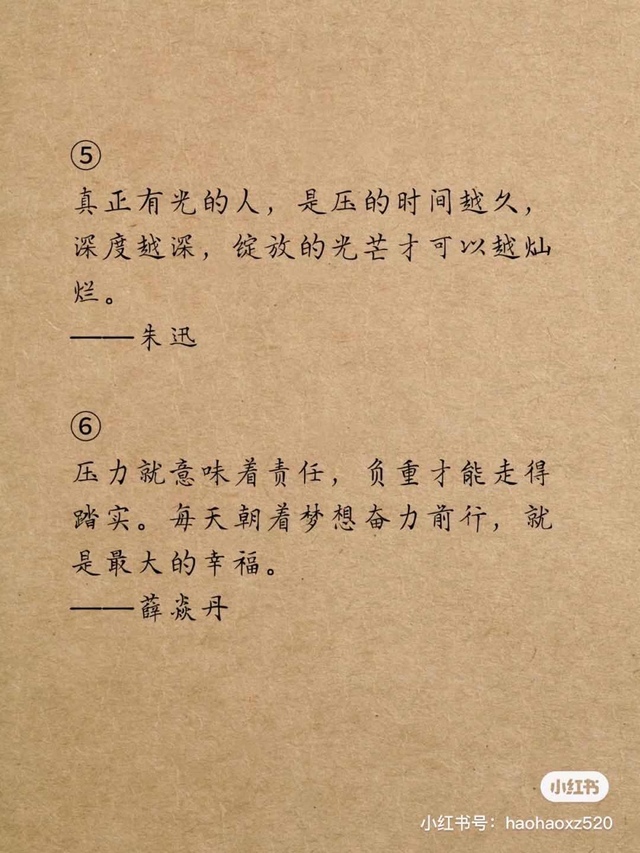 ⑤
真正有光的人，是压的时间越久，
深度越深，绽放的光芒才可以越灿
烂。
——朱迅
⑥
压力就意味着责任，负重才能走得
踏实。每天朝着梦想奋力前行，就
是最大的幸福。
——薛焱丹
小红书
小红书号：haohaoxz520